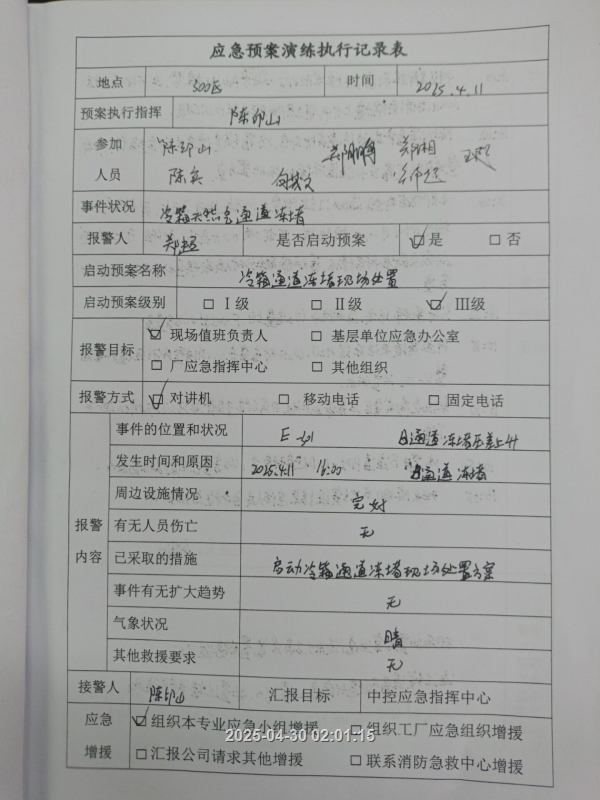 应急预案演练执行记录表
地点 300区 时间 2025.4.11
预案执行指挥 陈印山
参加 陈印山 郑湘
人员 陈兵
事件状况 冷箱天然气通道冻堵
报警人 郑超 是否启动预案 ☑是 □否
启动预案名称 冷箱通道冻堵现场处置
启动预案级别 □Ⅰ级 □Ⅱ级 ☑Ⅲ级
报警目标 ☑现场值班负责人 □基层单位应急办公室
□厂应急指挥中心 □其他组织
报警方式 ☑对讲机 □移动电话 □固定电话
报警内容
事件的位置和状况 通道冻堵压差上升
发生时间和原因 2025.4.11 16:00 通道冻堵
周边设施情况 完好
有无人员伤亡 无
已采取的措施 启动冷箱通道冻堵现场处置方案
事件有无扩大趋势 无
气象状况 晴
其他救援要求 无
接警人 陈印山 汇报目标 中控应急指挥中心
应急 ☑组织本专业应急小组增援 □组织工厂应急组织增援
2025-04-30 02:01:15
增援 □汇报公司请求其他增援 □联系消防急救中心增援